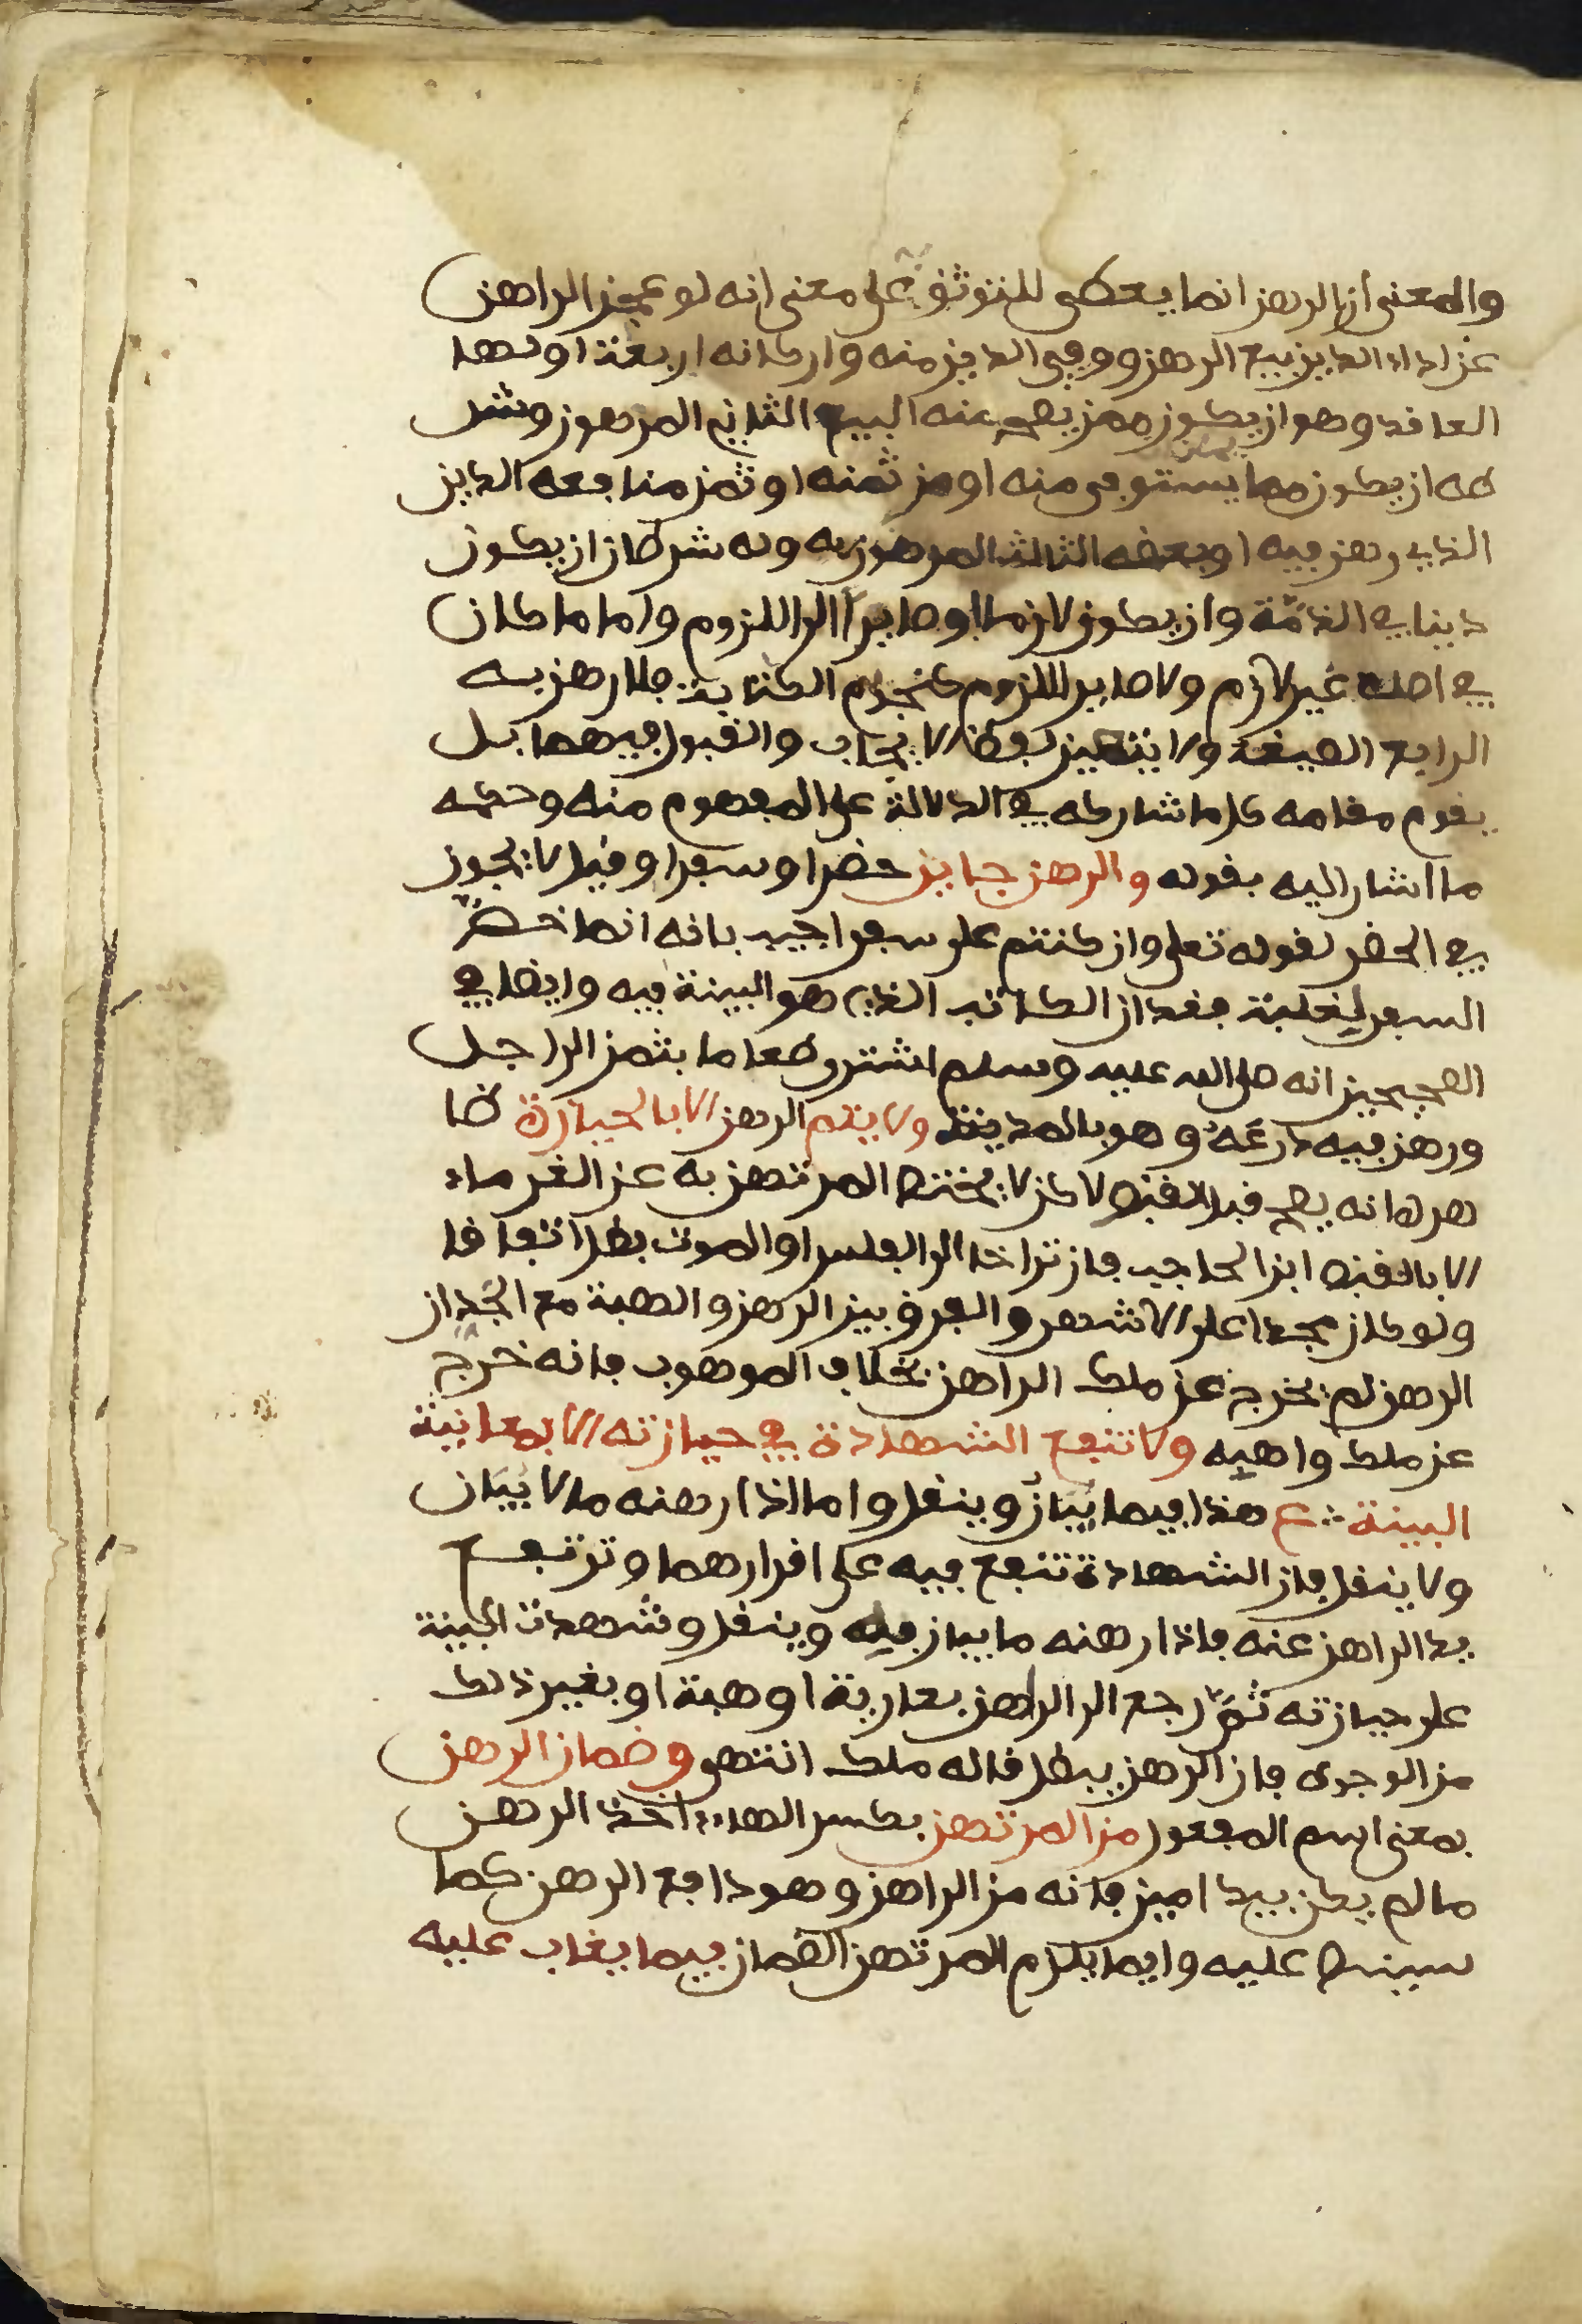 والمعنى ان الرهن انما يعطى للتوثق على معنى انه لو عجز الراهن
عن اداء الدين بيع الرهن ووفي الدين منه واركانه اربعة اولها
العاقد وهو ان يكون ممن يصح منه البيع الثاني المرهون وشر
طه ان يكون مما يستوفى منه او من ثمنه او ثمن منافعه الدين
الذي رهن فيه او بعضه الثالث المرهون به وله شرطان ان يكون
دينا في الذمة وان يكون لازما او صايرا الى اللزوم واما ما كان
في اصله غير لازم ولا صاير اللزوم كنجوم الكتابة فلا رهن به
الرابع الصيغة ولا يتعين لفظ الايجاب والقبول فيهما بل
يقوم مقامه كل ما شاركه في الدلالة على المفهوم منه وحكمه
ما اشار اليه بقوله والرهن جايز حضرا وسفرا وقيل لا يجوز
في الحضر لقوله تعلى وان كنتم على سفر اجيب بانه انما خصّ
السفر لغلبة فقدان الكاتب الذي هو البينة فيه وايضا في
الصحيحين انه صلى الله عليه وسلم اشترى طعاما بثمن الى اجل
ورهن فيه درعه وهو بالمدينة ولا يتم الرهن الا بالحيازة ظا
هره انه يصح قبل القبض لاكن لا يختص المرتهن به عن الغرماء
الا بالقبض ابن الحاجب فان تراخا الى الفلس او الموت بطل اتفاقا
ولو كان مجدا على الاشهر والفرق بين الرهن والهبة مع الجد ان
الرهن لم يخرج عن ملك الراهن بخلاف الموهوب فانه خرج
عن ملك واهبه ولا تنفع الشهادة في حيازته الا بمعاينة
البينة ع هذا فيما يبان وينقل واما اذا رهنه ما لا يبان
ولا ينقل فان الشهادة تنفع فيه على اقرارهما وترتفع
يد الراهن عنه فاذا رهنه ما يبان فيه وينقل وشهدت البينة
على حيازته ثمّ رجع الى الراهن بعارية او هبة او بغير ذلك
من الوجوه فان الرهن يبطل قاله ملك انتهى وضمان الرهن
بمعنى اسم المفعول من المرتهن بكسر الهاء اخذ الرهن
ما لم يكن بيد امين فانه من الراهن وهو دافع الرهن كما
سينبه عليه وانما يلزم المرتهن الضمان فيما يغاب عليه